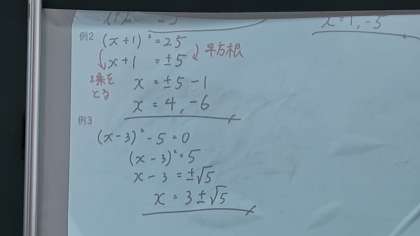 x = 1, -5
例2
(x+1)² = 25
x+1 = ±5
平方根
2乗を
とる
x = ±5 - 1
x = 4, -6
例3
(x-3)² - 5 = 0
(x-3)² = 5
x - 3 = ±√5
x = 3 ± √5